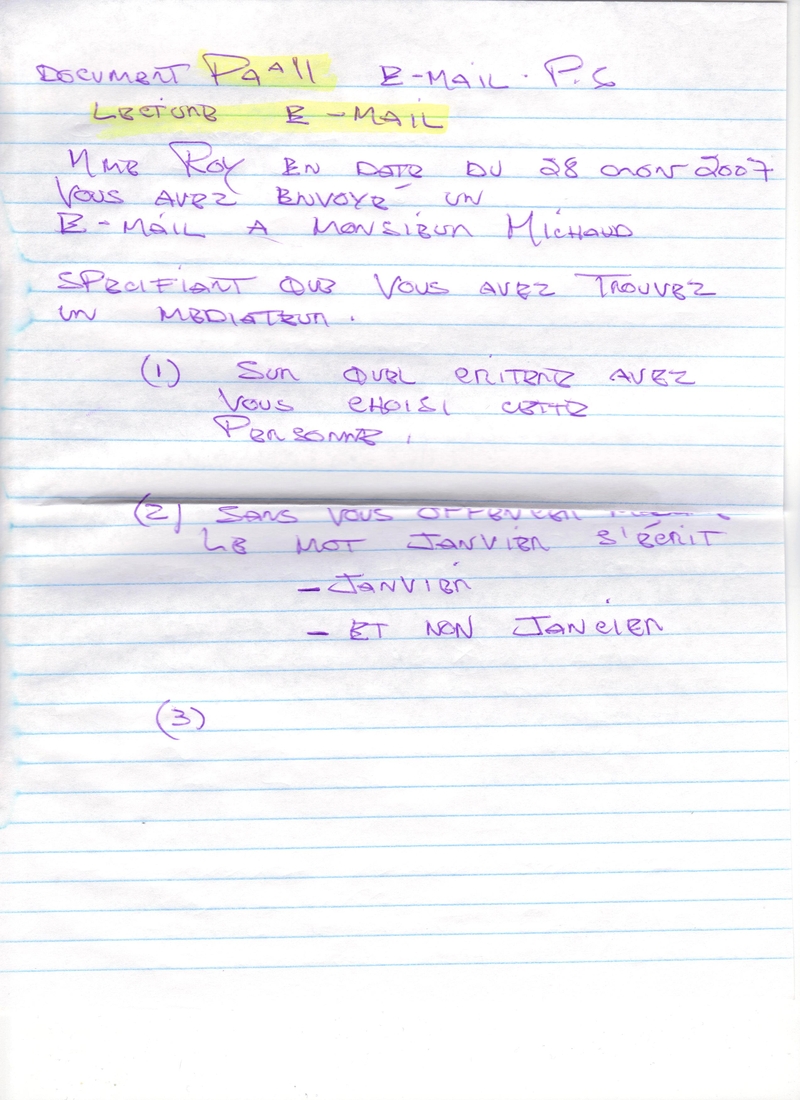 DOCUMENT E-MAIL. P.S
LECTURE E-MAIL
MME ROY EN DATE DU 28 2007
VOUS AVEZ ENVOYÉ UN
E-MAIL A MONSIEUR MICHAUD
SPECIFIANT QUE VOUS AVEZ TROUVEZ
UN MEDIATEUR.
(1) SUR QUEL CRITERE AVEZ
VOUS CHOISI CETTE
PERSONNE,
(2) SANS VOUS OFFENCER
LE MOT JANVIER S'ÉCRIT
- JANVIER
- ET NON JANCIER
(3)